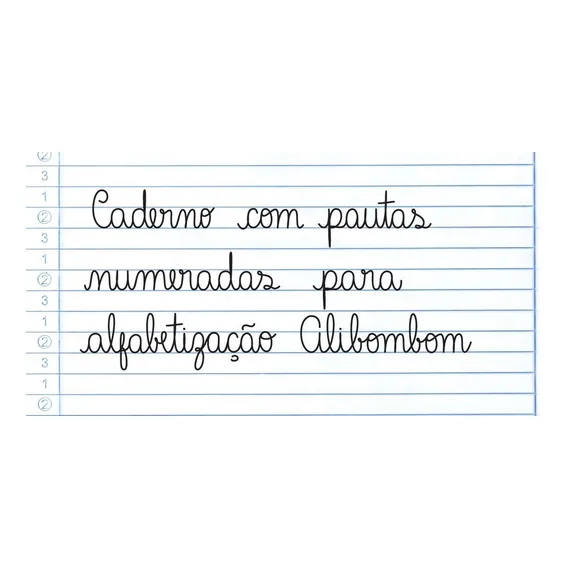 2
3
1
2
3
1
2
3
1
2
3
1
2
Caderno com pautas
numeradas para
alfabetização Alibombom